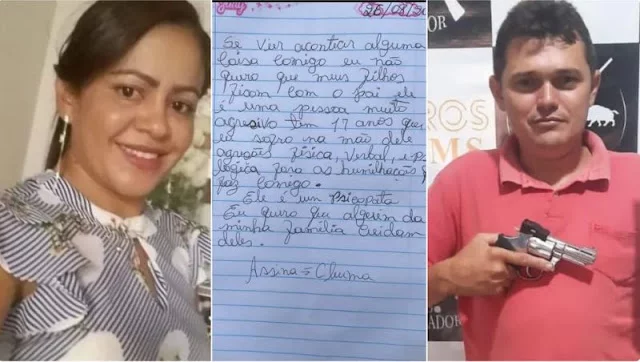 25/03/20
Se vier acontrar alguma
Coisa comigo eu não
quero que meus filhos
ficam com o pai ele
é uma pessoa muito
agresivo tem 17 anos que
eu sofro na mão dele
física, verbal, e Psi
lógica fora as humilhações q
faz comigo.
Ele é um Psicopata
Eu quero que alguem da
minha família Cuidam
deles.
Assina =
ROS
MS
ADOR
ADOR